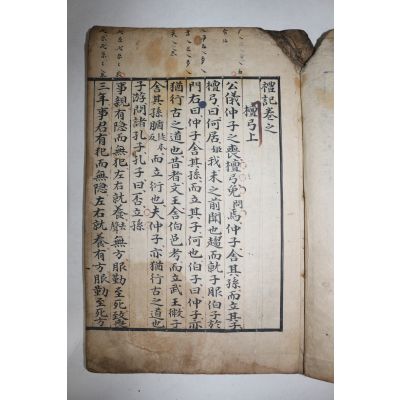 禮記卷之
檀弓上
公儀仲子之喪檀弓免問焉仲子舍其孫而立其子
檀弓曰何居姬我未之前聞也趨而就子服伯子於
門右曰仲子舍其孫而立其子何也伯子曰仲子亦
猶行古之道也昔者文王舍伯邑考而立武王微子
舍其孫腯徒本反而立衍也夫仲子亦猶行古之道也
子游問諸孔子孔子曰否立孫
事親有隱而無犯左右就養無方服勤至死致喪
三年事君有犯而無隱左右就養有方服勤至死方